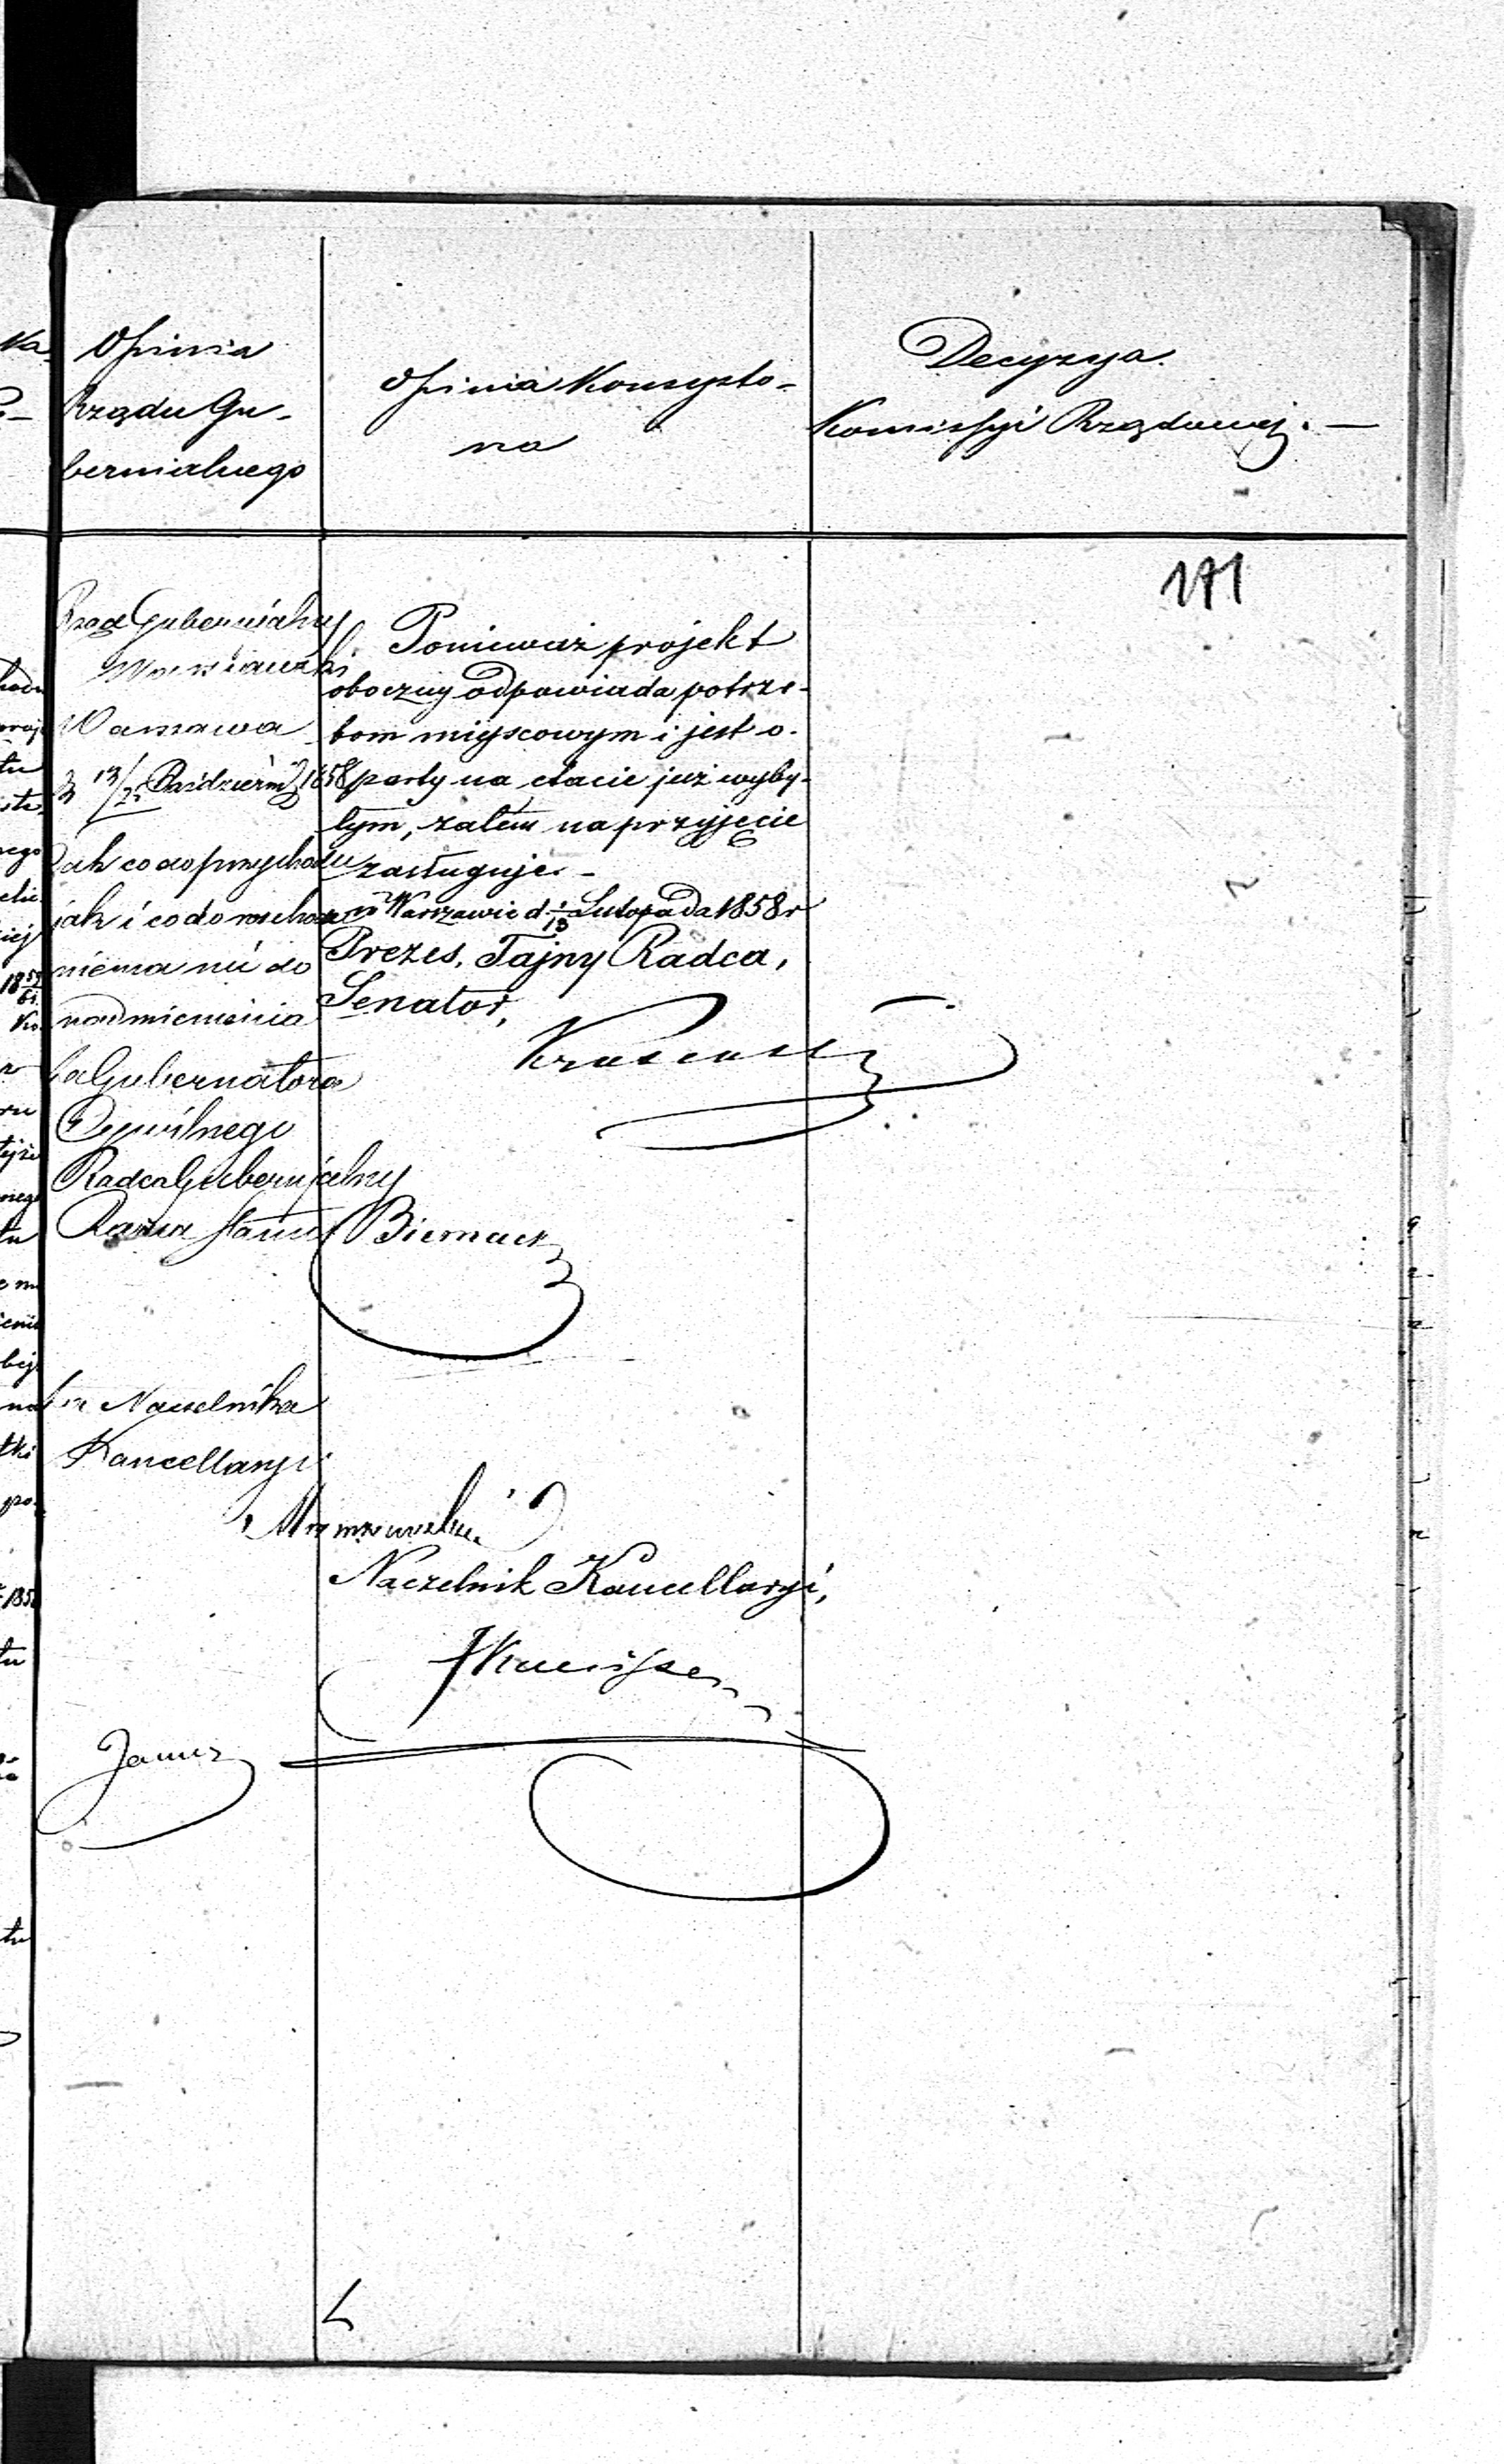 Opinia
Rządu Gu-
bernialnego
Opinia Konsysto-
rza
Decyzya
Komissyi Rządowej. —
171
Rząd Gubernialny
Warszawski
Warszawa
d 13/25 Październ 1858
Tak co do przychodu
jak i co do rozchodu
niema nic do
nadmienienia
za Gubernatora
Cywilnego
Radca Gubernjalny
Radca Stanu Biernacki
za Naczelnika
Kancellaryi
Janusz
Ponieważ projekt
oboczny odpowiada potrze-
bom miejscowym i jest o-
party na etacie już wyby-
łym, zatem na przyjęcie
zasługuje. -
w Warszawie d. 1/13 Listopada 1858 r
Prezes, Tajny Radca,
Senator,
Naczelnik Kancellaryi,